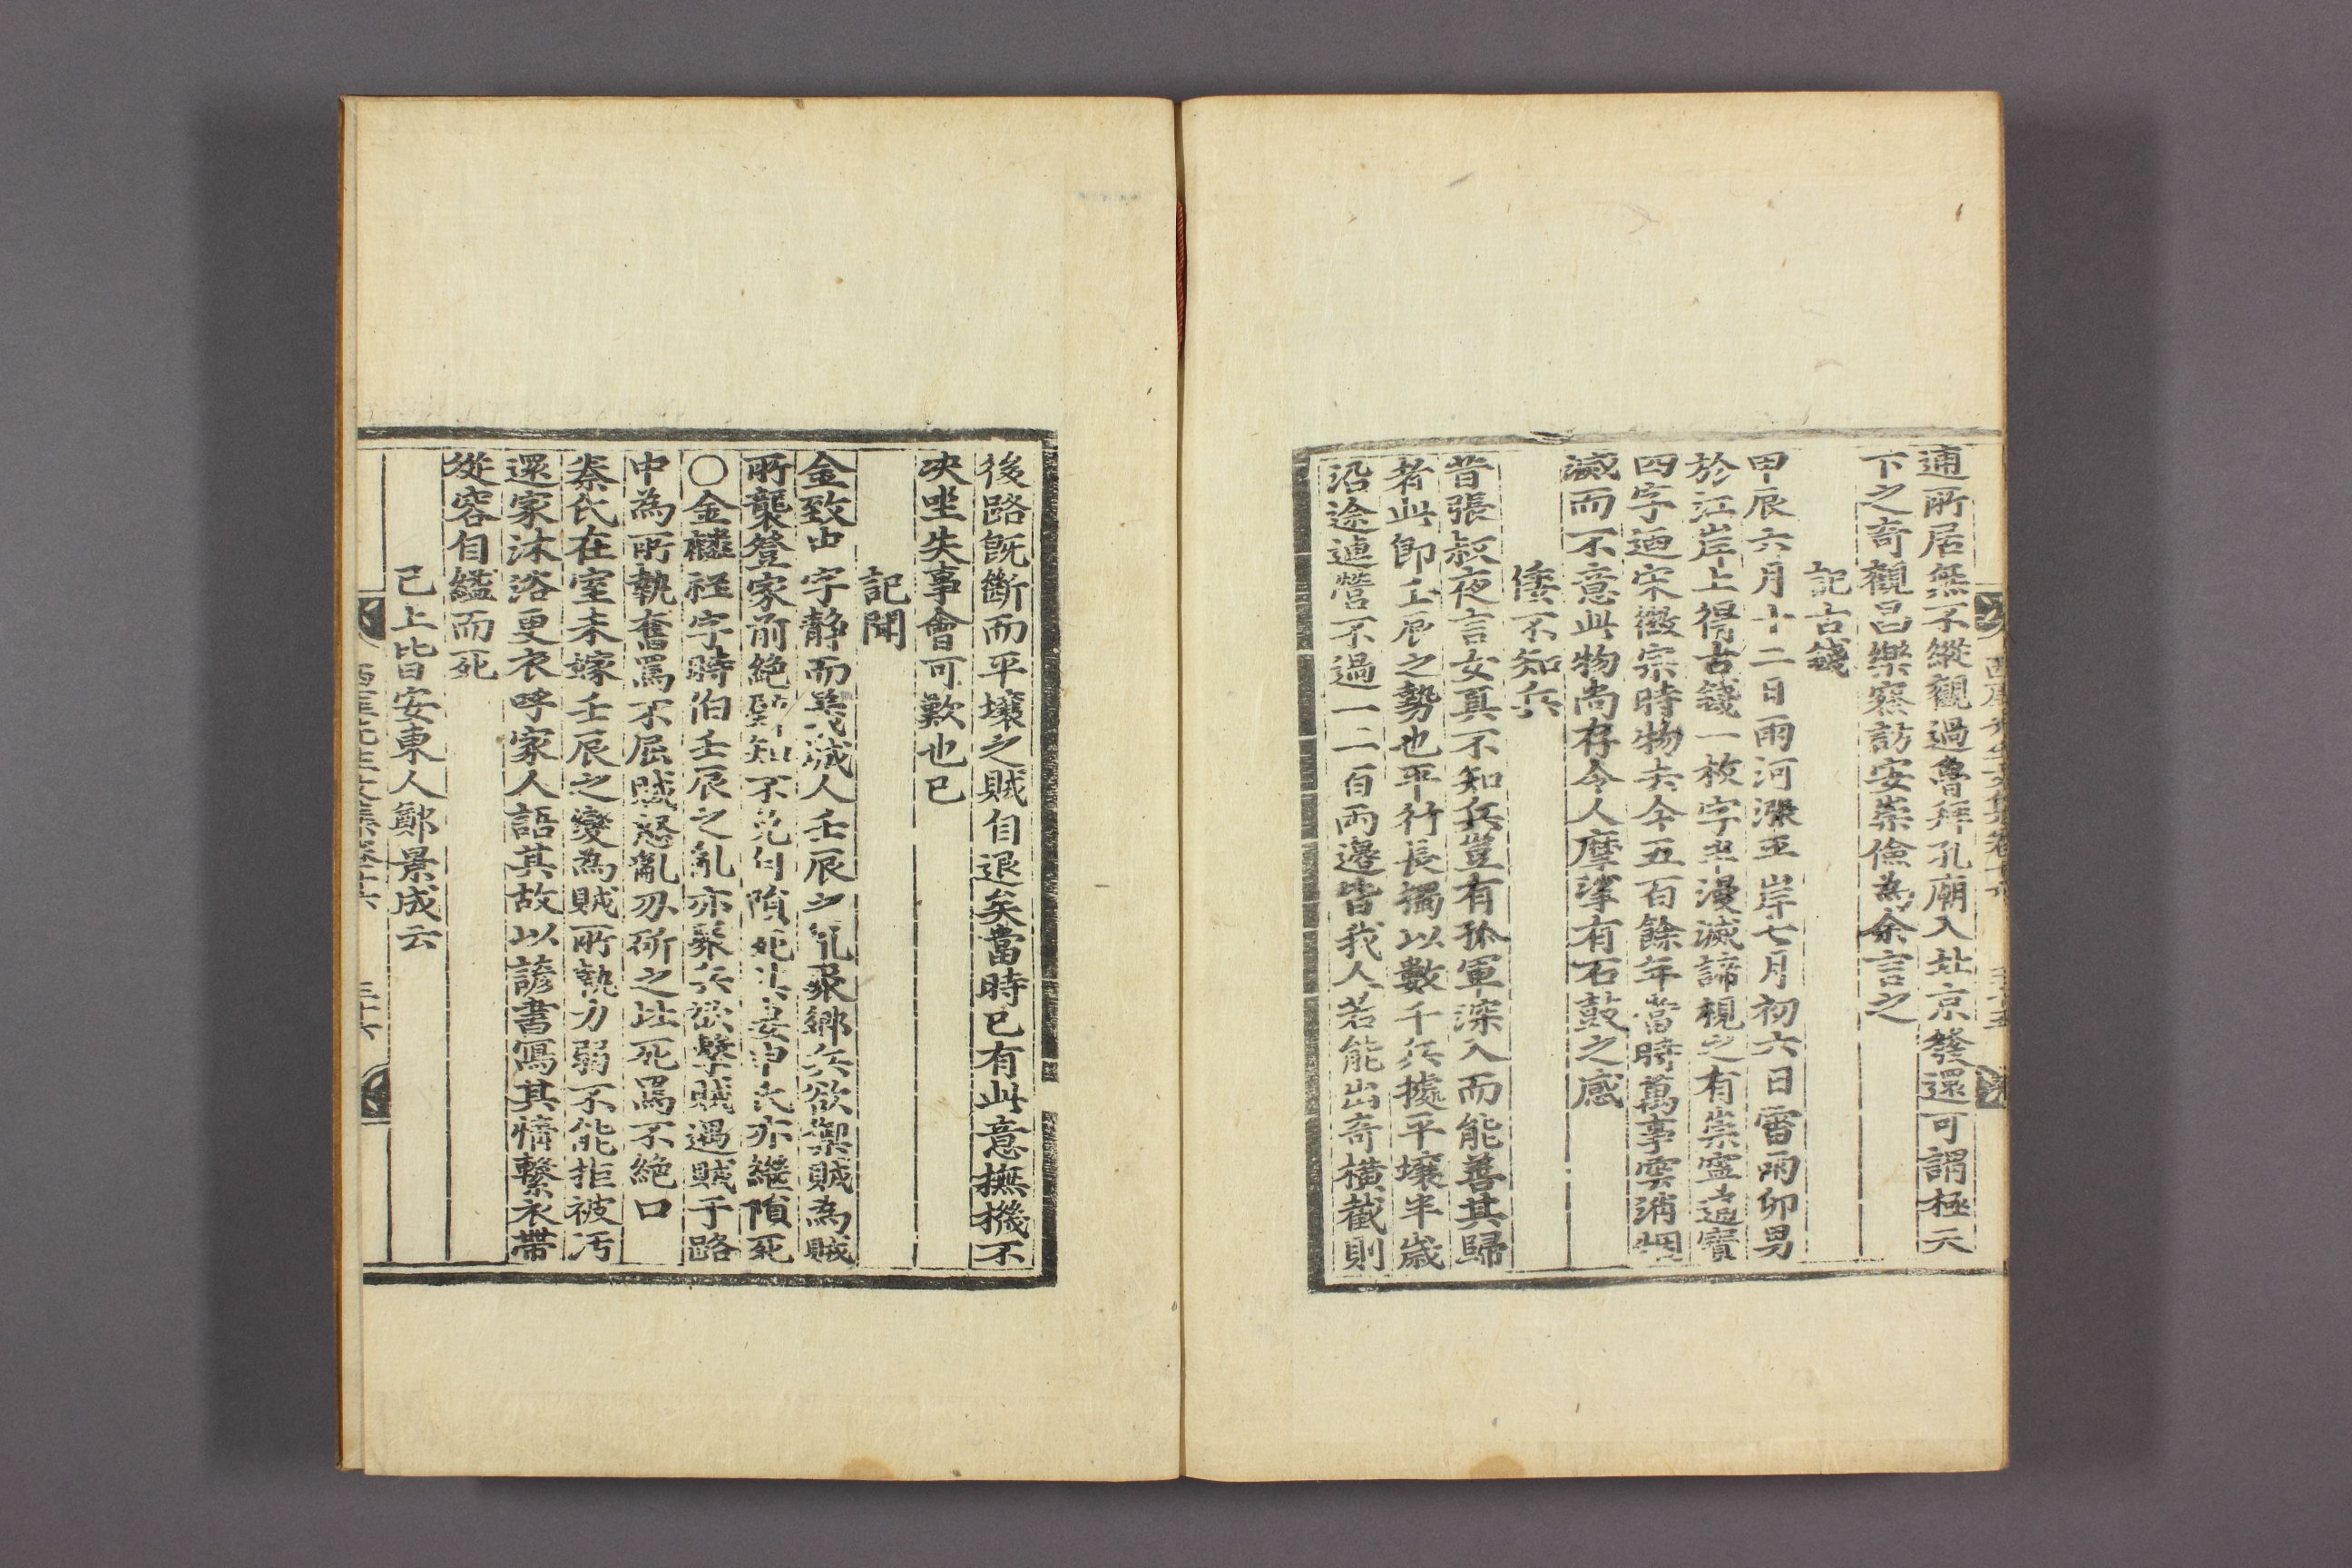 通所居無不縱觀過魯拜孔廟入北京發還可謂極天
下之奇觀昌樂察訪安崇儉為余言之
記古錢
甲辰六月十二日雨河漲至岸七月初六日雷雨卯男
於江岸上得古錢一枚字半漫滅諦視之有崇寧通寶
四字迺宋徽宗時物去今五百餘年當時萬事雲消烟
滅而不意此物尚存令人摩挲有石鼓之感
倭不知兵
昔張叔夜言女真不知兵豈有孤軍深入而能善其歸
者此卽壬辰之勢也平行長獨以數千兵據平壤半歲
沿途連營不過一二百兩邊皆我人若能出奇橫截則
後路旣斷而平壤之賊自退矣當時已有此意撫機不
决坐失事會可歎也已
記聞
金致中字靜而義城人壬辰之亂聚鄉兵欲禦賊為賊
所襲登家前絶壁知不免自隕死其妻申氏亦繼隕死
〇金麟祉字時伯壬辰之亂亦聚兵欲擊賊遇賊于路
中為所執奮罵不屈賊怒亂刃斫之比死罵不絶口
秦氏在室未嫁壬辰之變為賊所執力弱不能拒被汚
還家沐浴更衣呼家人語其故以諺書寫其情繫衣帶
從容自縊而死
已上皆安東人鄭景成云
西厓先生文集卷十六 三十六